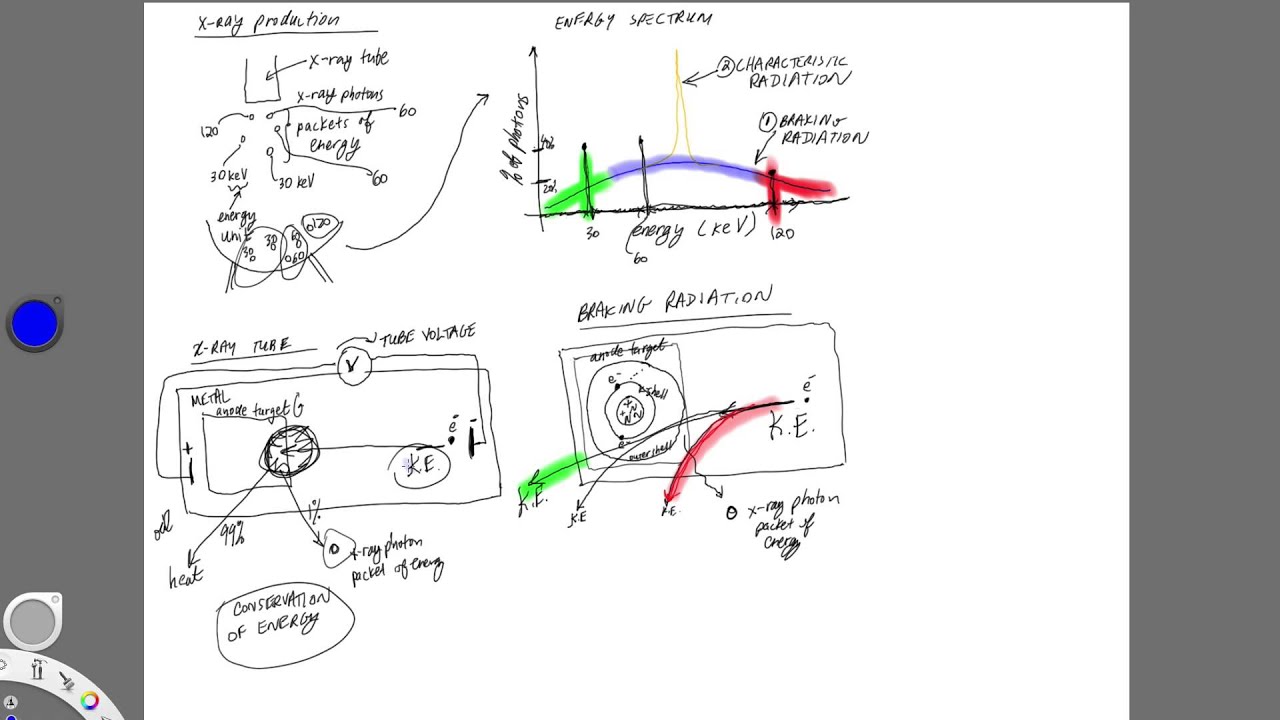 X-ray production
X-ray tube
X-ray photons
60
120
packets of
energy
30 keV
30 keV
60
energy
unit
30
30
60
60
120
ENERGY SPECTRUM
② CHARACTERISTIC
RADIATION
① BRAKING
RADIATION
% of photons
40%
20%
30
energy (keV)
120
60
X-RAY TUBE
TUBE VOLTAGE
V
METAL
anode target
e-
+
-
K.E.
oil
99%
1%
heat
x-ray photon
packet of energy
CONSERVATION
OF ENERGY
BRAKING RADIATION
anode target
e-
shell
+ N
+ N N
e-
outer shell
e-
K.E.
K.E.
K.E
K.E.
x-ray photon
packet of
energy